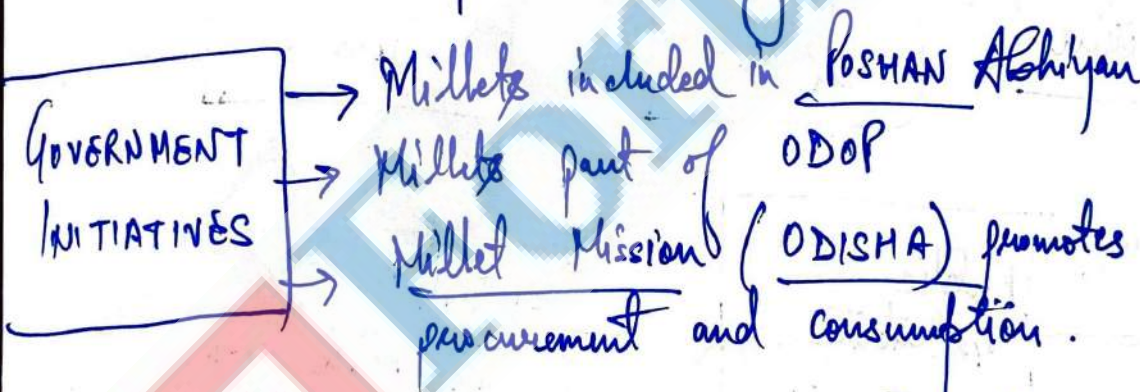 GOVERNMENT
INITIATIVES
→ Millets included in POSHAN Abhiyan
→ Millets part of ODOP
→ Millet Mission (ODISHA) promotes
procurement and consumption.